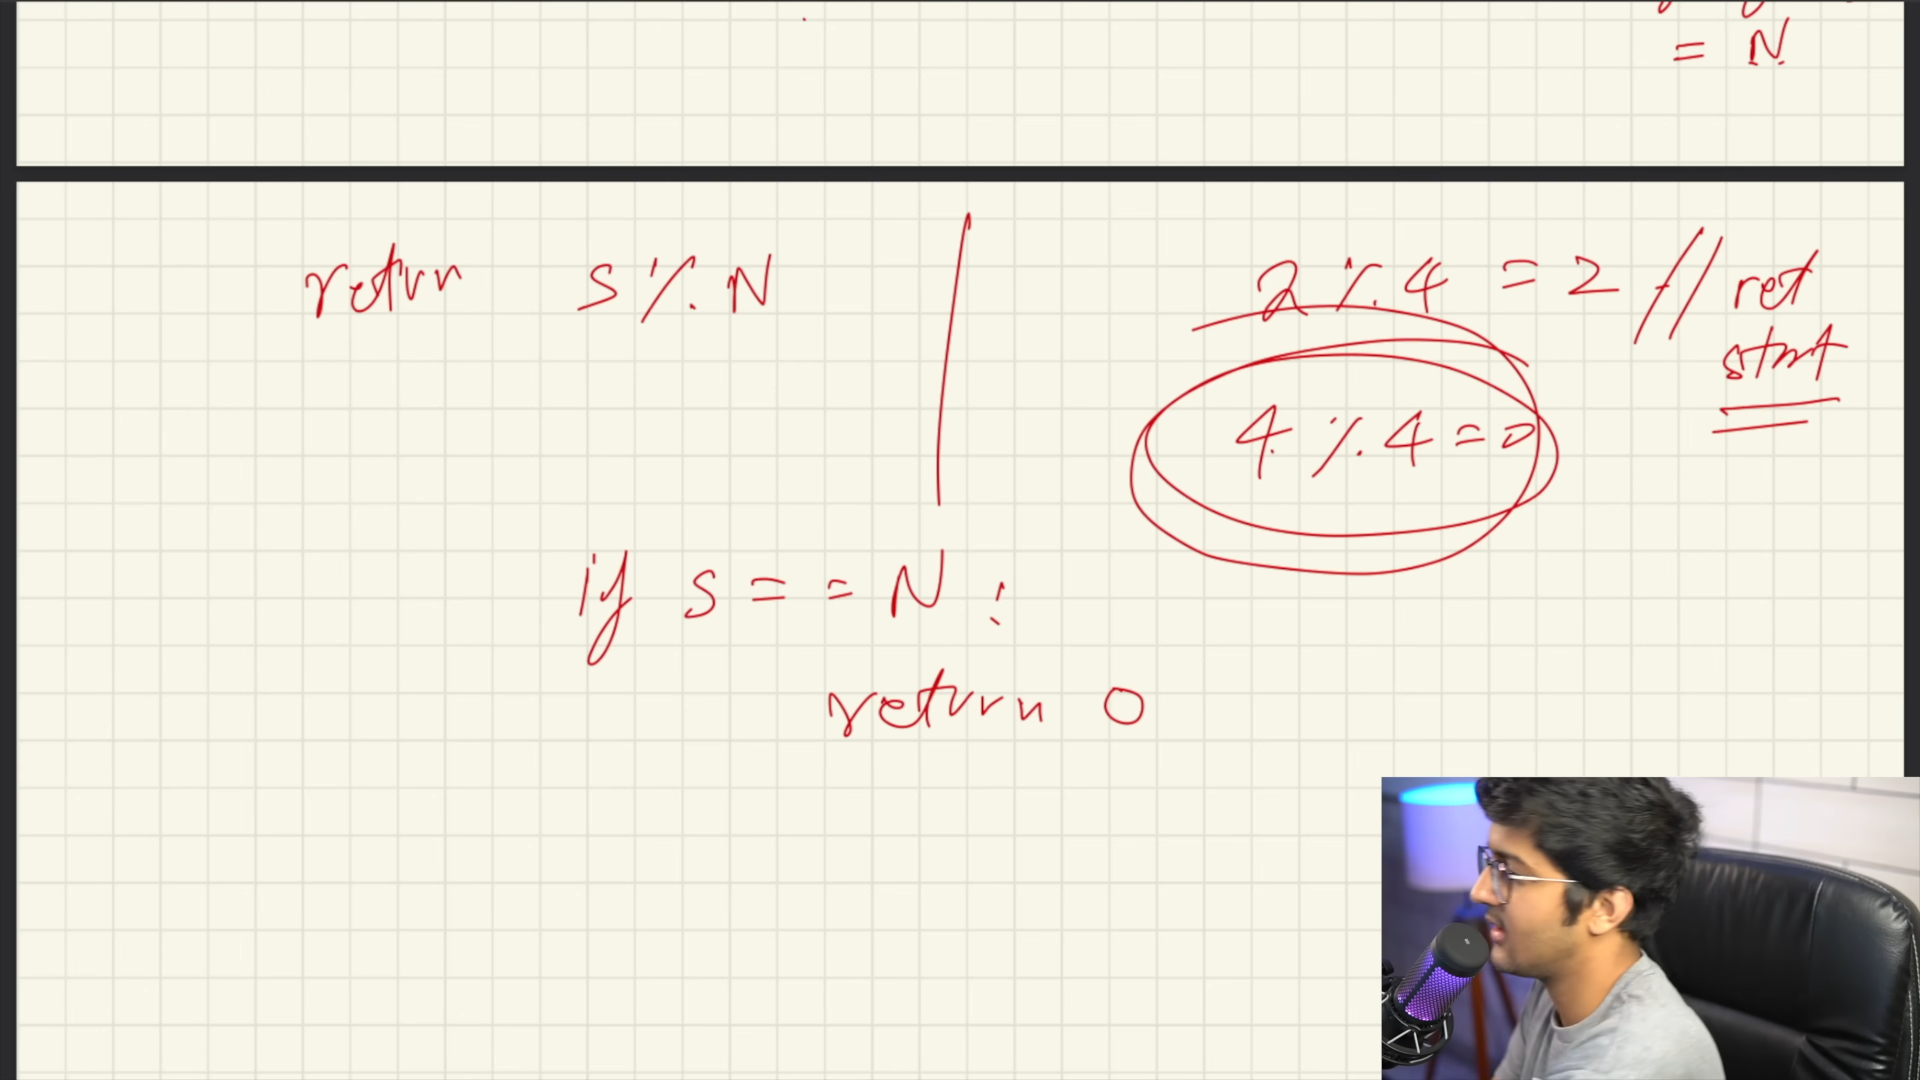 = N
return s % N
2 % 4 = 2 // ret
start
4 % 4 = 0
if s == N :
return 0